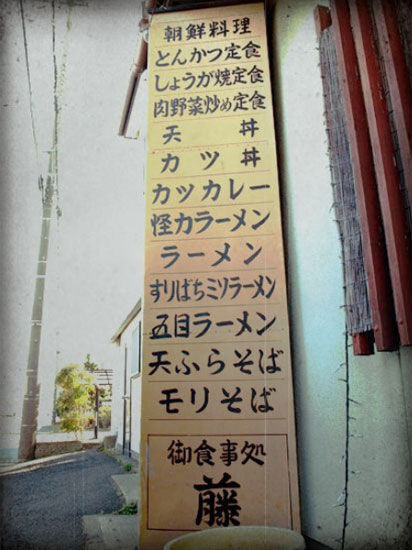 朝鮮料理
とんかつ定食
しょうが焼定食
肉野菜炒め定食
天丼
カツ丼
カツカレー
怪力ラーメン
ラーメン
すりばちミソラーメン
五目ラーメン
天ぷらそば
モリそば
御食事処
藤